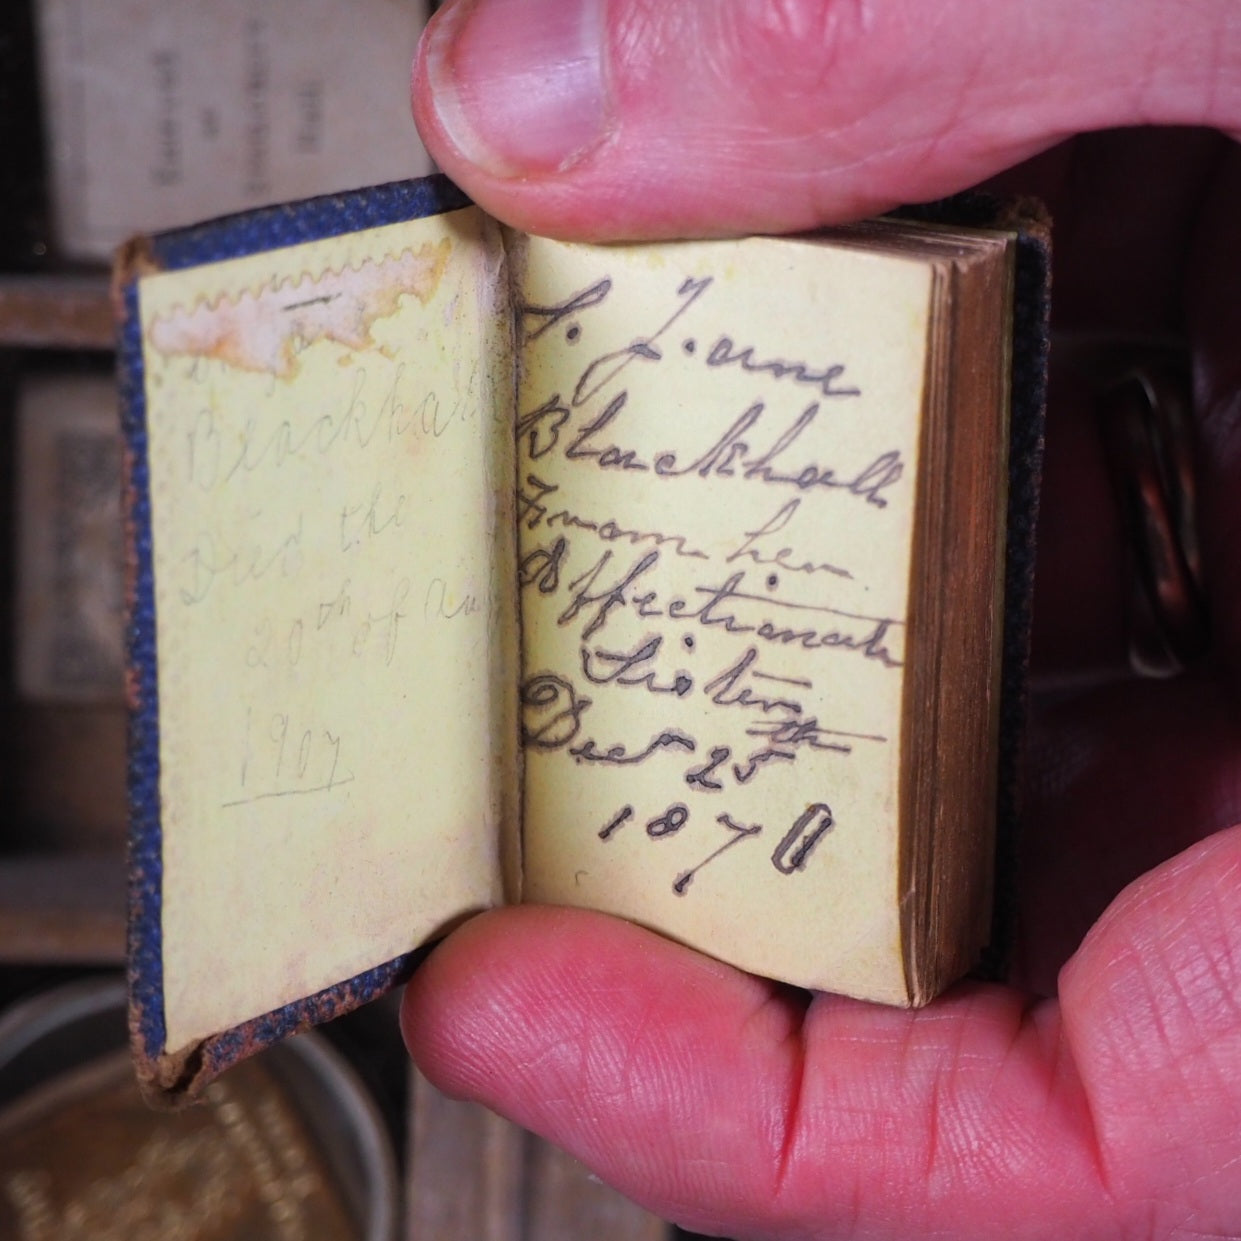 Blackhall
Died the
20th of Au
1907
S. J. ane
Blackhall
From her
Affectionate
Sister
Decr 25th
1870